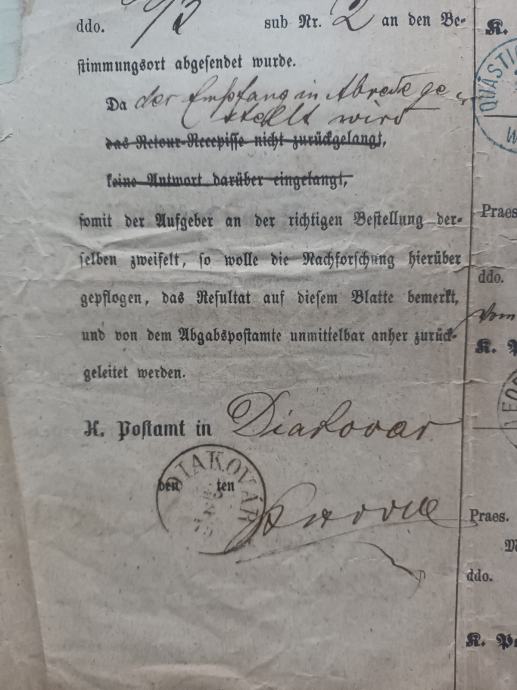 ddo. 9/3 sub Nr. 2 an den Be-
stimmungsort abgesendet wurde.
Da der Empfang in Abrede ge-
stellt wird
das Retour-Recepisse nicht zurückgelangt,
keine Antwort darüber eingelangt,
somit der Aufgeber an der richtigen Bestellung der-
selben zweifelt, so wolle die Nachforschung hierüber
gepflogen, das Resultat auf diesem Blatte bemerkt,
und von dem Abgabspostamte unmittelbar anher zurück-
geleitet werden.
K. Postamt in Diakovar
DIAKOVÁR
den ten
K.
QUÄSTIO
Praes
ddo.
vom
K. P
LEO
Praes.
ddo.
K. Po